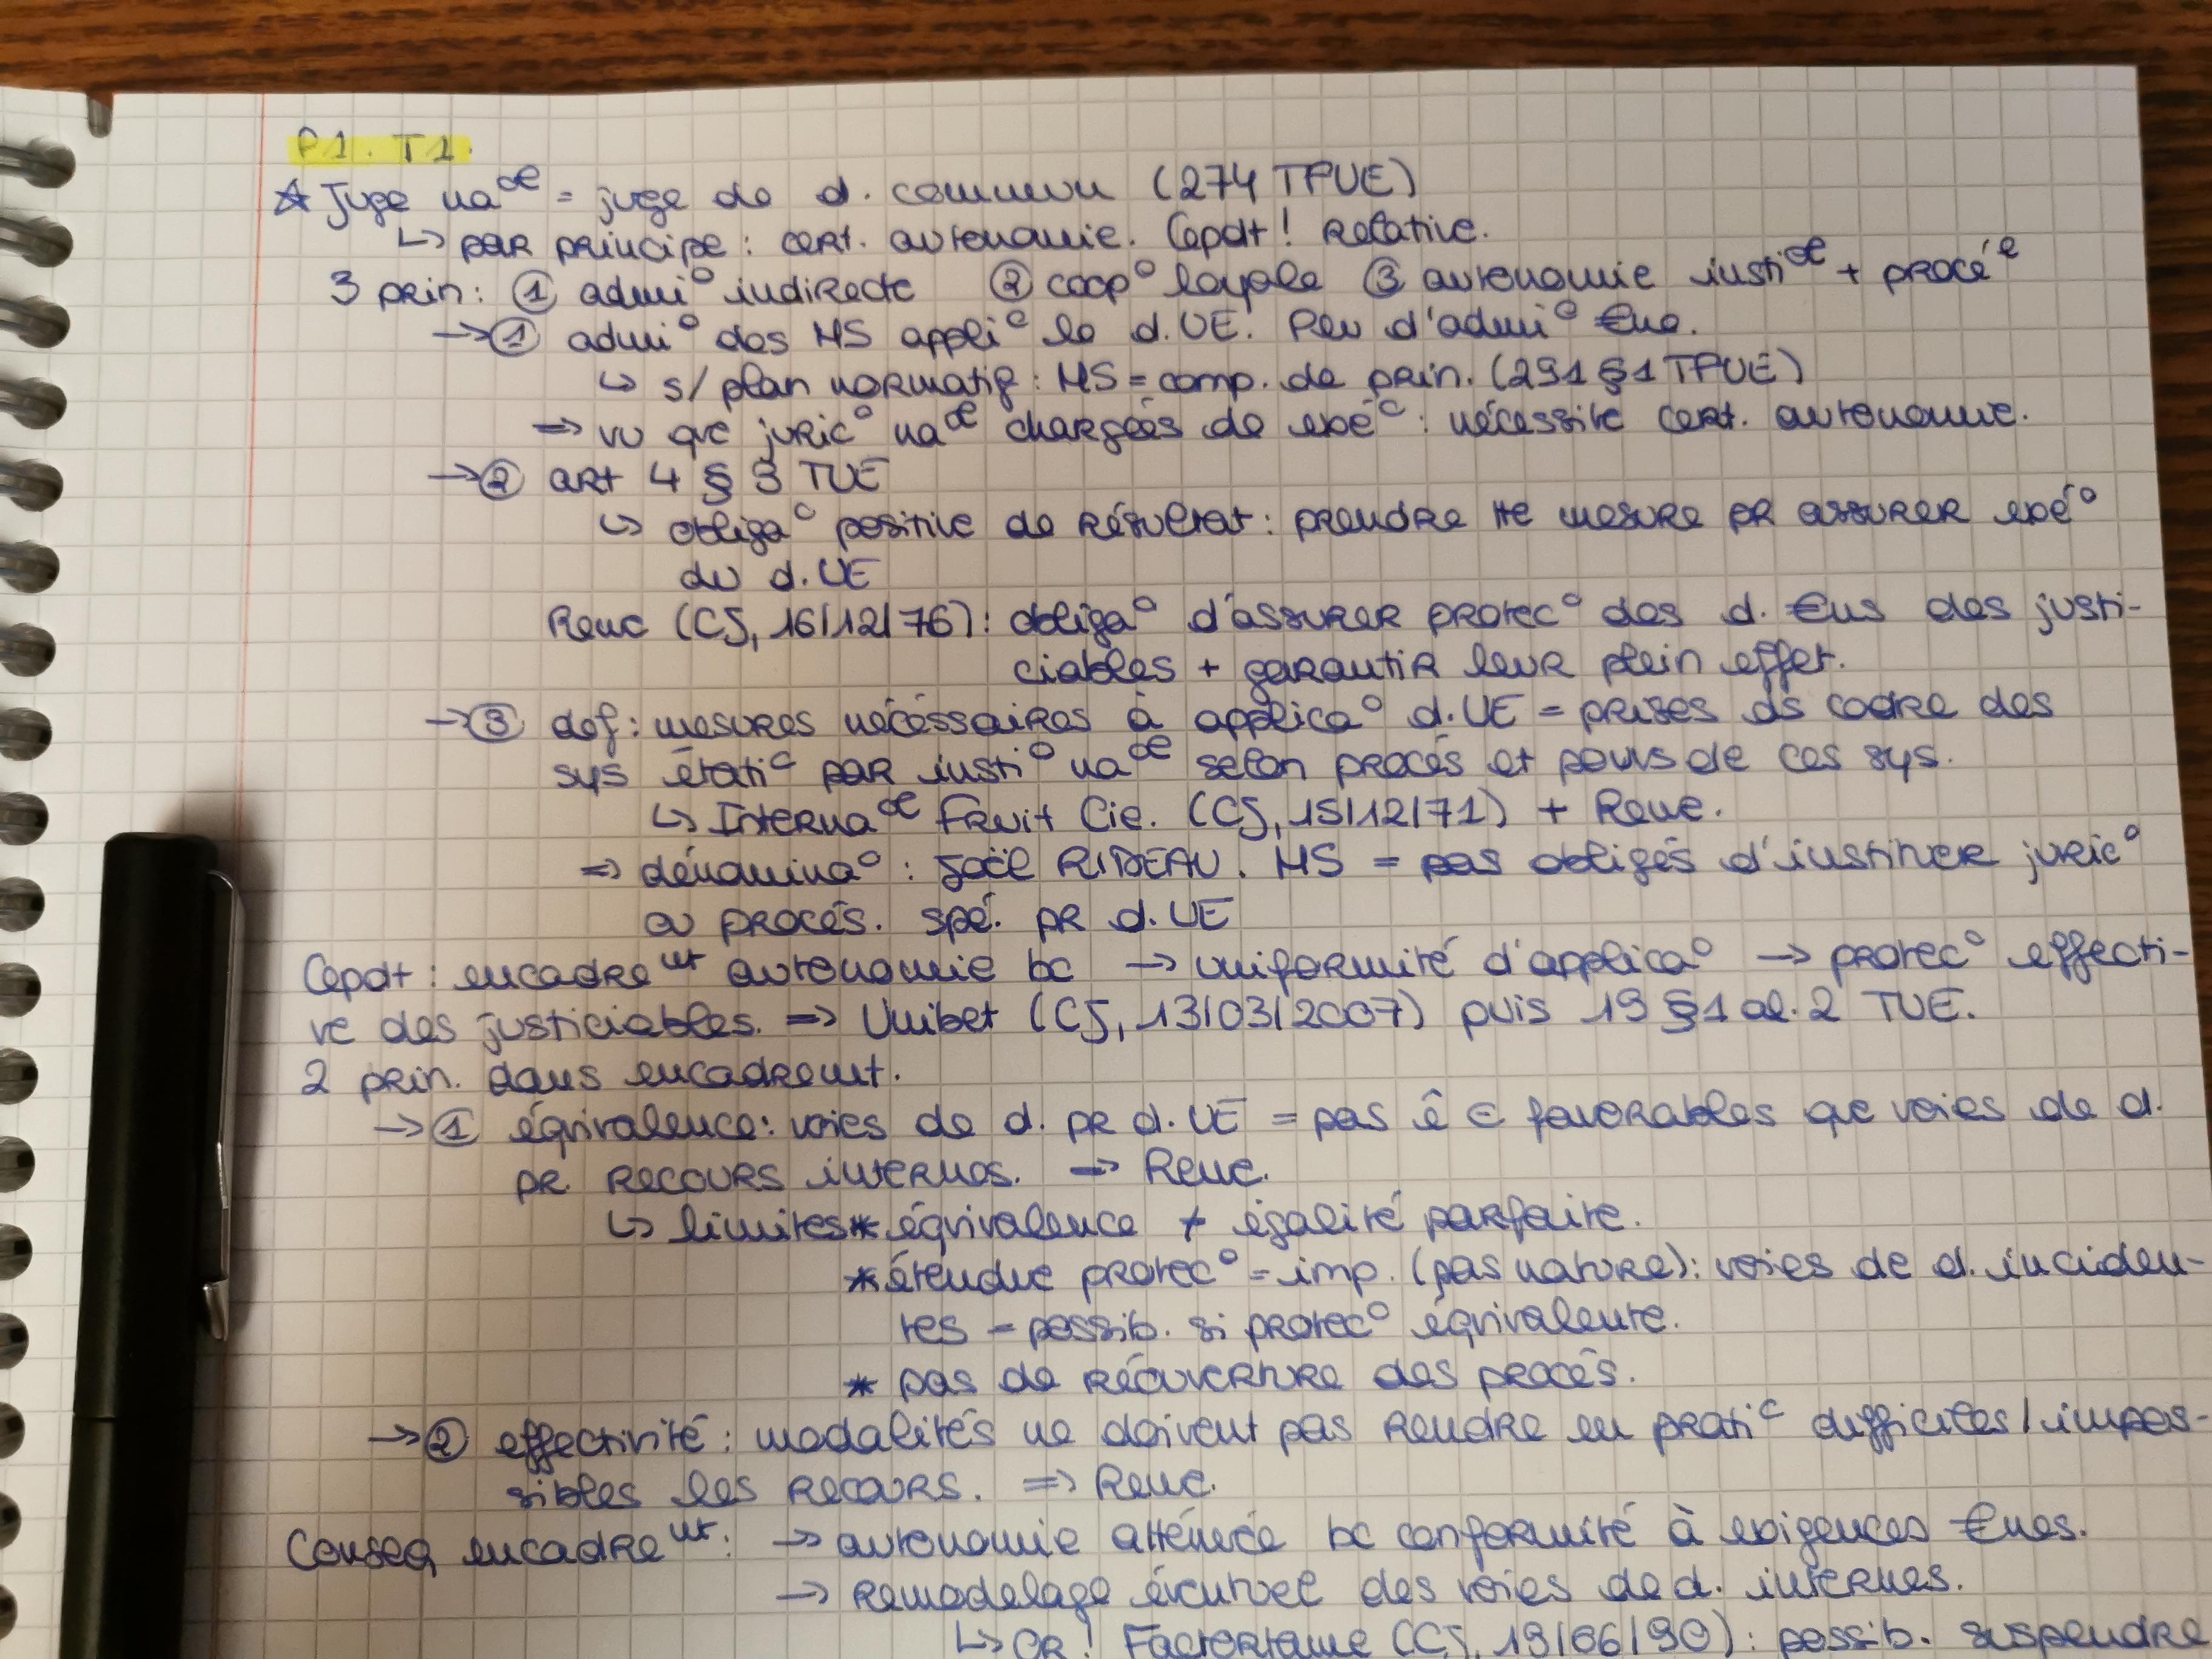 P1. T1.
☆ Juge na^al = juge de d. commun (274 TFUE)
↳ par principe : cert. autonomie. Cepdt ! Relative.
3 prin : ① admi° indirecte ② coop° loyale ③ autonomie insti^al + procé^le
→ ① admi° des MS appli^c le d. UE. Peu d'admi° €ne.
↳ s/ plan normatif : MS = comp. de prin. (291 §1 TFUE)
⇒ vu que juric° na^al chargées de exé° : nécessite cert. autonomie.
→ ② art 4 § 3 TUE
↳ obliga° positive de résultat : prendre tte mesure pr assurer exé°
du d. UE
Rewe (CJ, 16/12/76) : obliga° d'assurer protec° des d. €ns des justi-
ciables + garantir leur plein effet.
→ ③ def : mesures nécéssaires à applica° d. UE = prises ds cadre des
sys étati^c par insti° na^al selon procés et pouvs de ces sys.
↳ Interna^al Fruit Cie. (CJ, 15/12/71) + Rewe.
⇒ dénomina° : Joël RIDEAU. MS = pas obligés d'instituer juric°
ou procés. spé. pr d. UE
Cepdt : encadre^mt autonomie bc → uniformité d'applica° → protec° effecti-
ve des justiciables. ⇒ Unibet (CJ, 13/03/2007) puis 19 §1 al. 2 TUE.
2 prin. dans encadremt.
→ ① équivalence : voies de d. pr d. UE = pas ê ⊖ favorables que voies de d.
pr. recours internes. → Rewe.
↳ limites * équivalence ≠ égalité parfaite.
* étendue protec° = imp. (pas nature) : voies de d. inciden-
tes = possib. si protec° équivalente.
* pas de réouverture des procés.
→ ② effectivité : modalités ne doivent pas rendre en prati^c difficiles / impos-
sibles les recours. ⇒ Rewe.
Conseq encadre^mt : → autonomie atténuée bc conformité à exigences €nes.
→ remodelage éventuel des voies de d. internes.
↳ GR ! Factortame (CJ, 19/06/90) : possib. suspendre